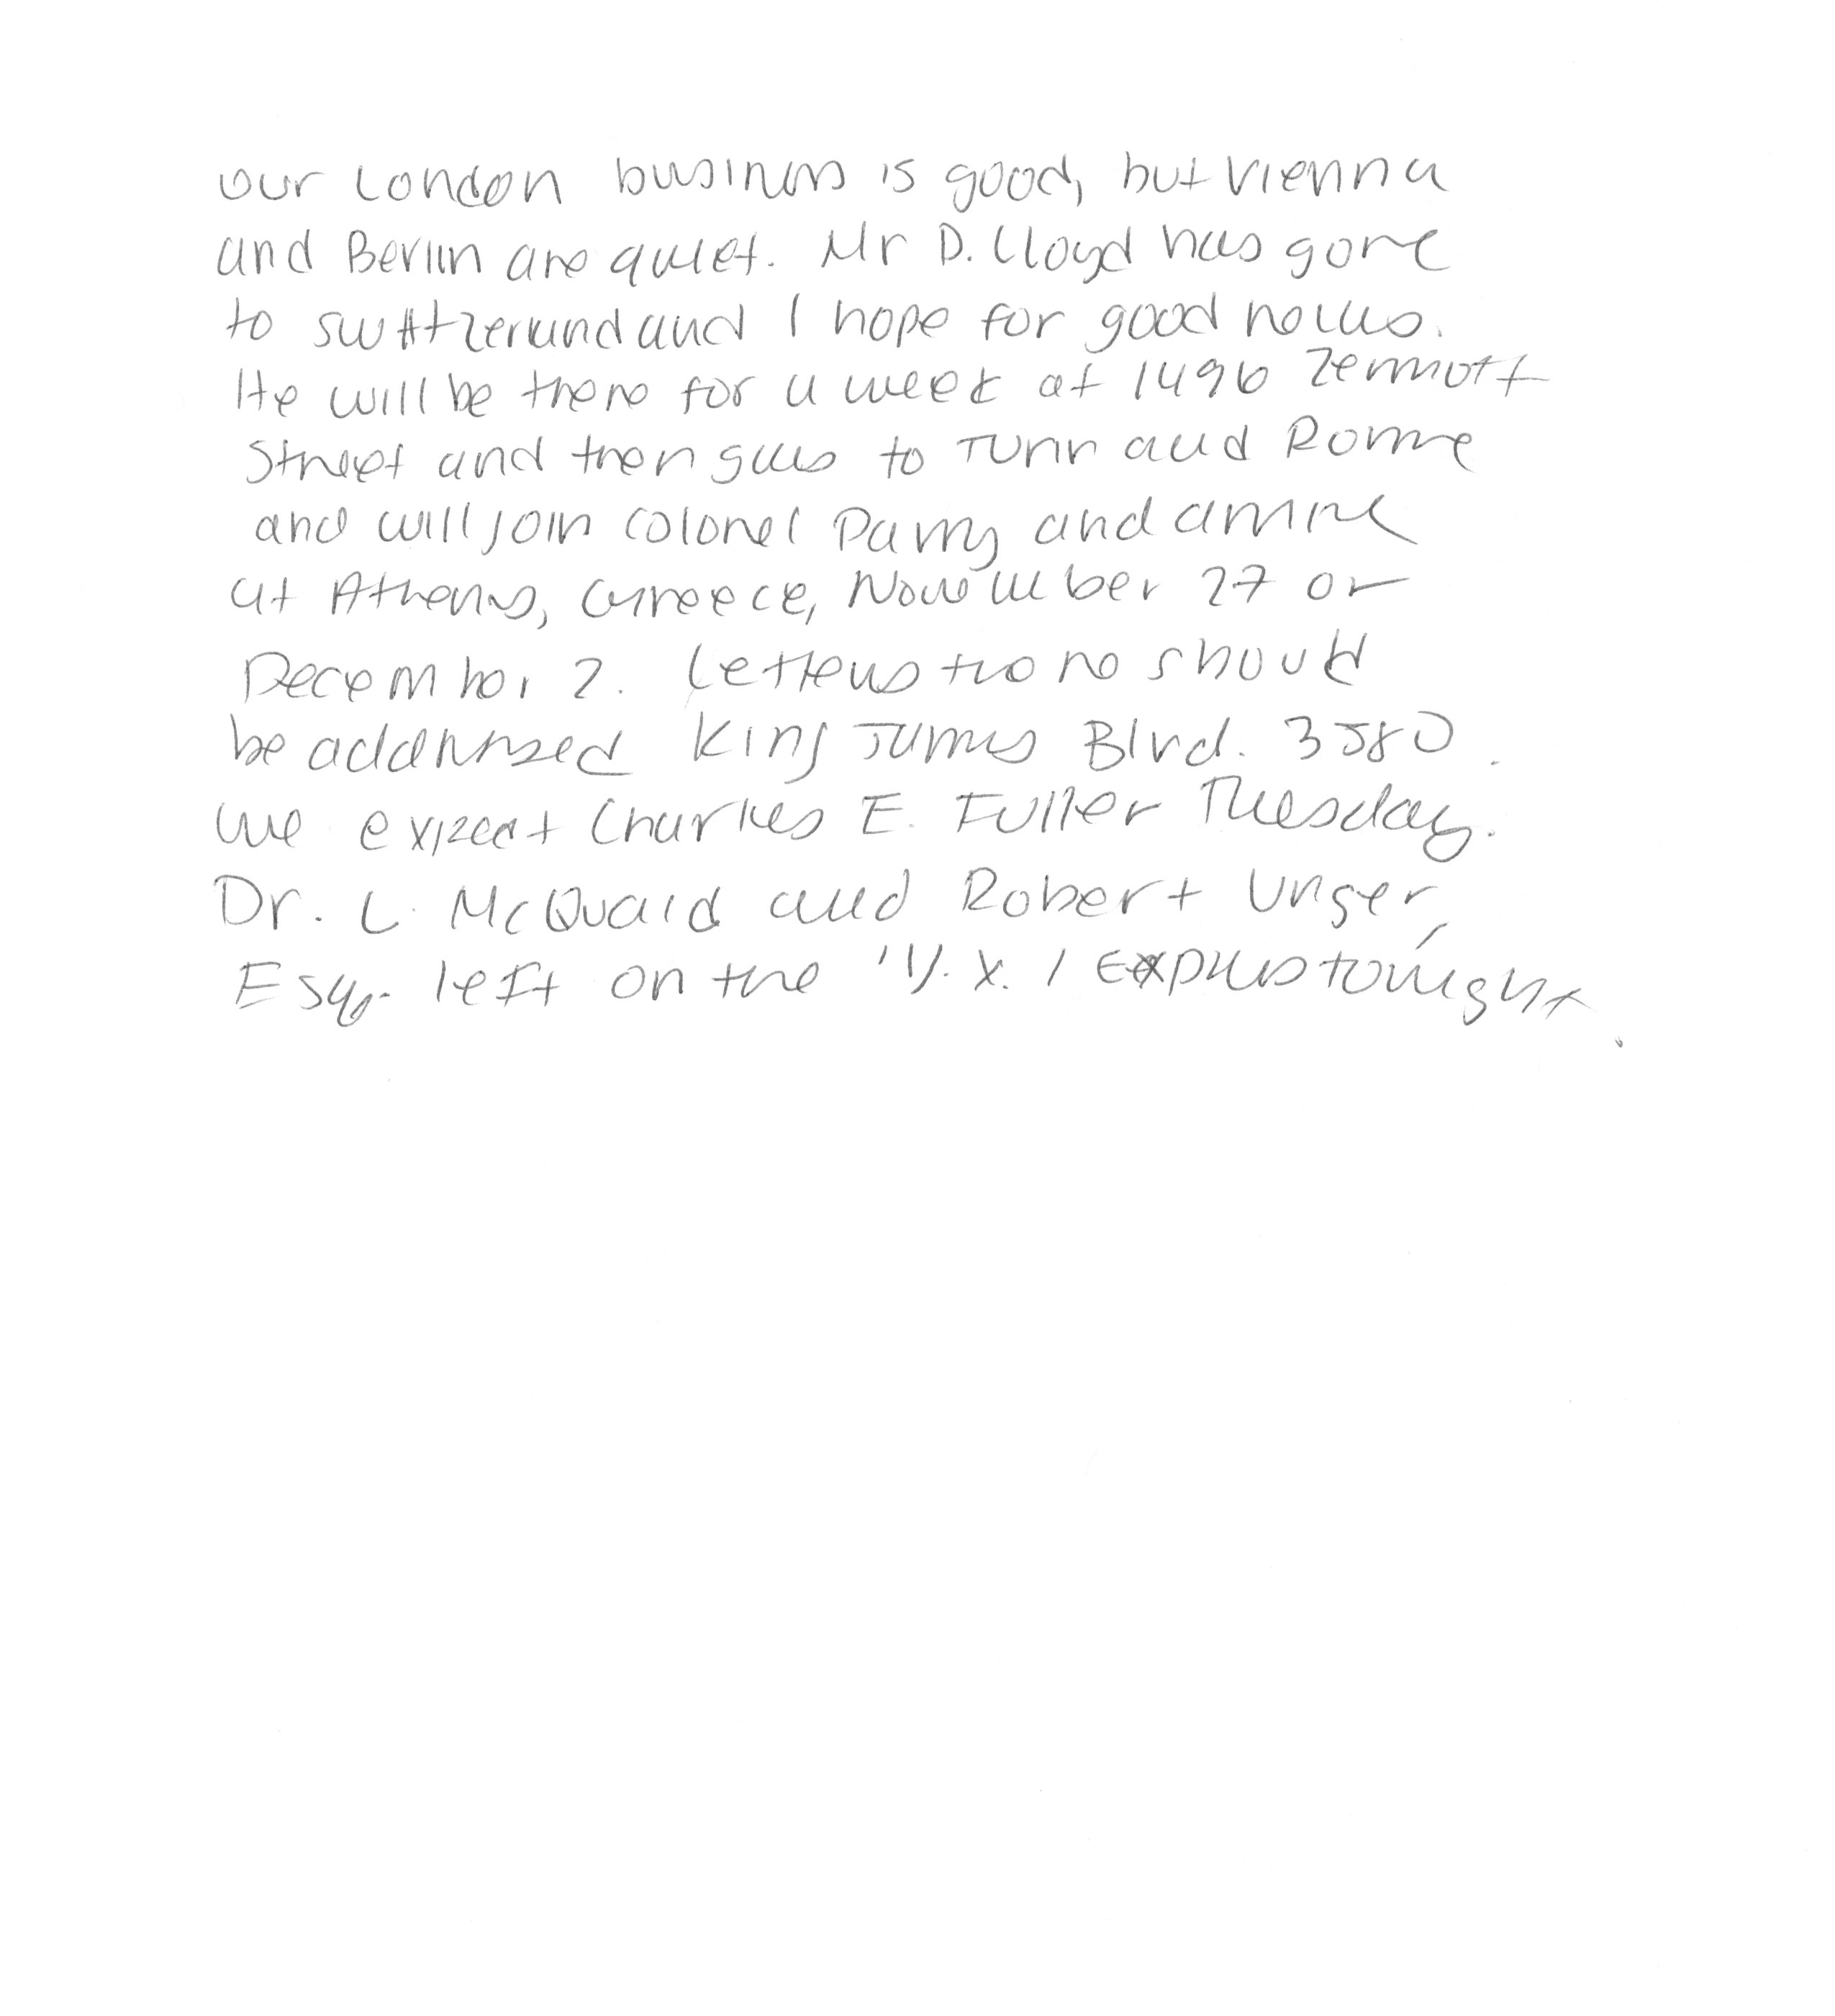 our London business is good, but Vienna
and Berlin are quiet. Mr D. Lloyd has gone
to Switzerland and I hope for good news.
He will be there for a week at 1496 Zermott
Street and then goes to Turin and Rome
and will join Colonel Parry and arrive
at Athens, Greece, November 27 or
December 2. Letters there should
be addressed King James Blvd. 3580.
We expect Charles E. Fuller Tuesday.
Dr. L. McQuaid and Robert Unger,
Esq. left on the 'Y.X.' Express tonight.